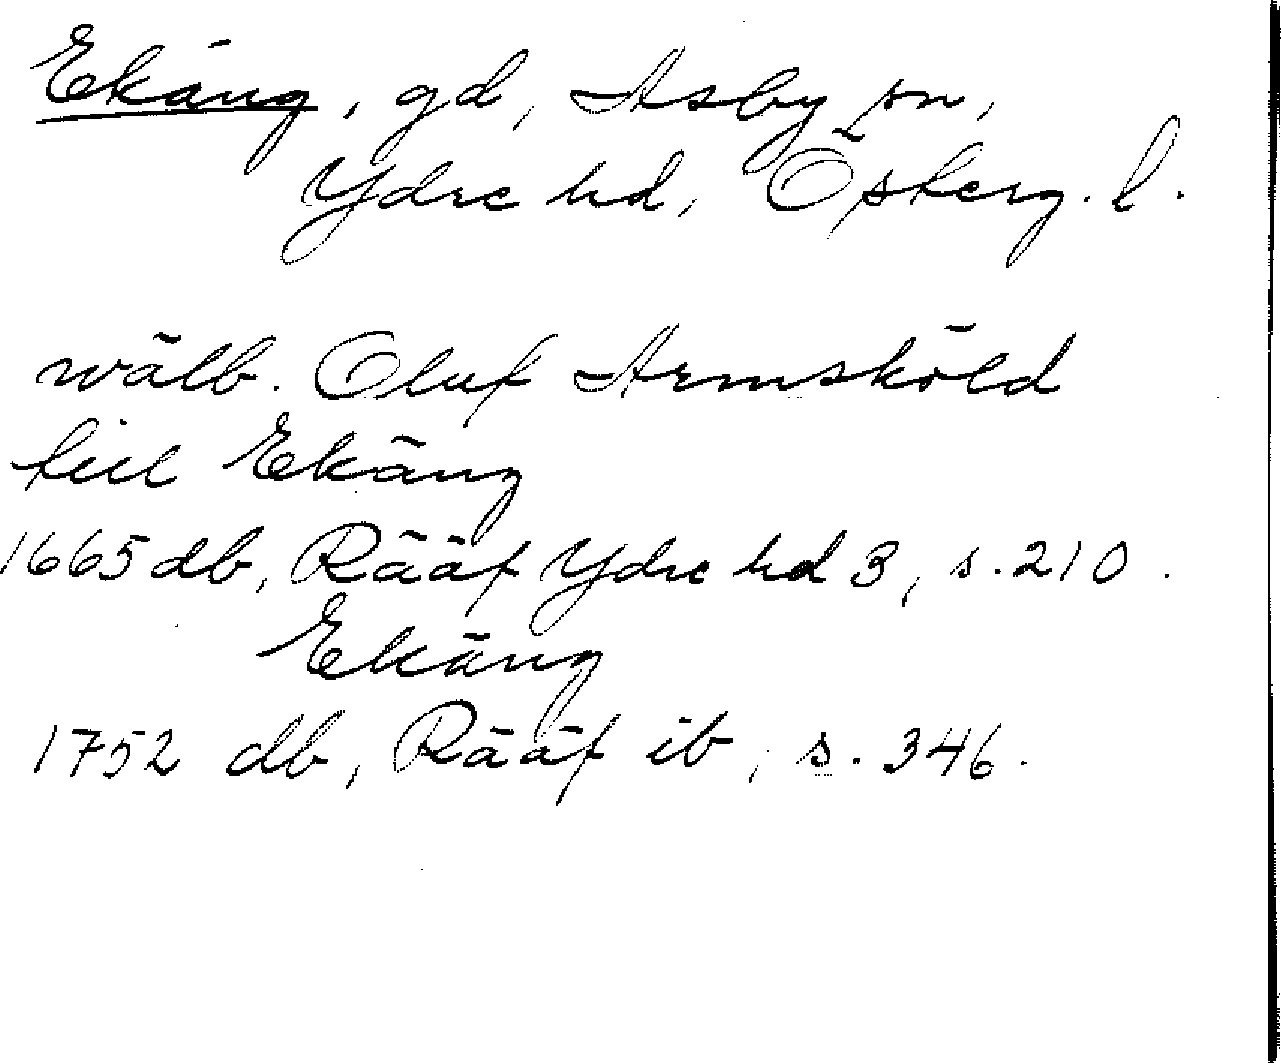 Ekäng, gd, Asby sn,
Ydre hd, Österg. l.
wälb. Oluf Armsköld
till Ekäng
1665 db, Rääf Ydre hd 3, s. 210.
Ekäng
1752 db, Rääf ib, s. 346.